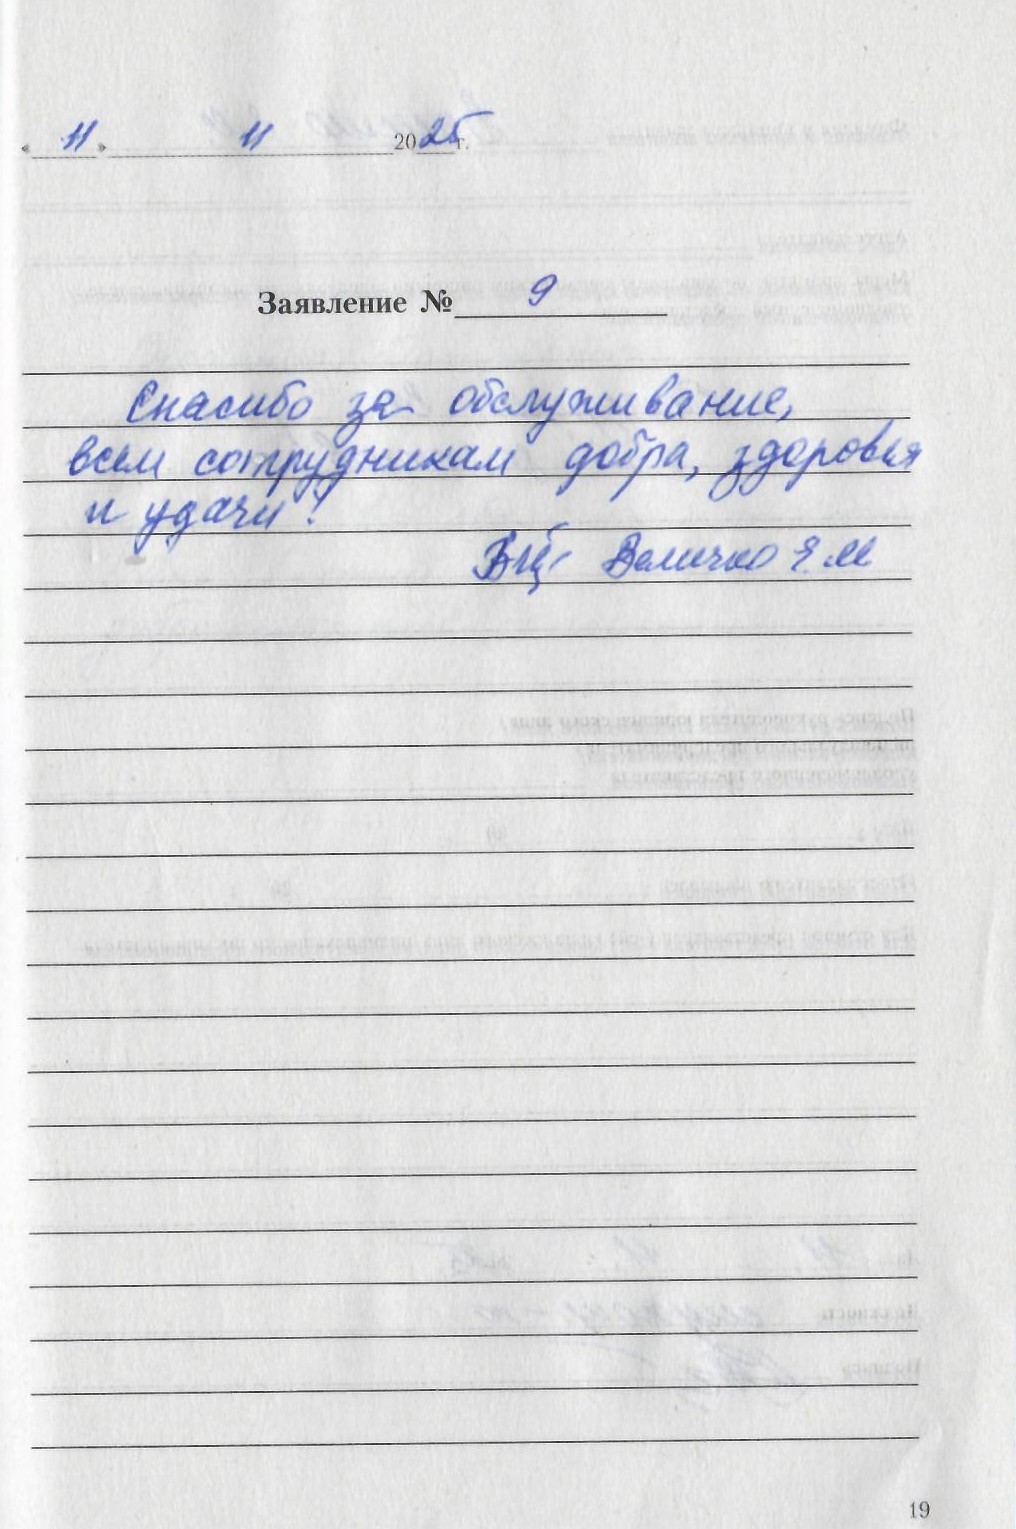 « 11 » 11 2025 г.
Заявление № 9
Спасибо за обслуживание,
всем сотрудникам добра, здоровья
и удачи!
Величко Е.М
19